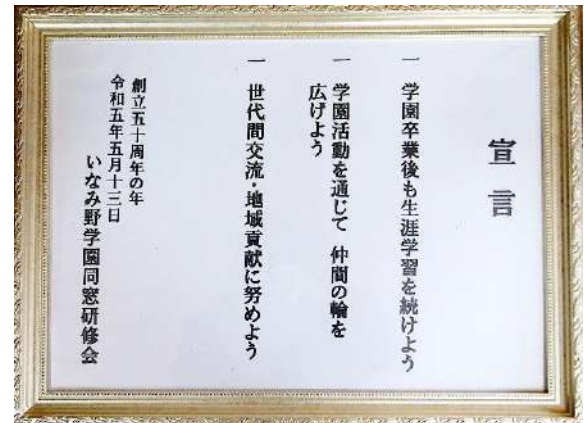 宣言
一 学園卒業後も生涯学習を続けよう
一 学園活動を通じて 仲間の輪を
広げよう
一 世代間交流・地域貢献に努めよう
創立五十周年の年
令和五年五月十三日
いなみ野学園同窓研修会